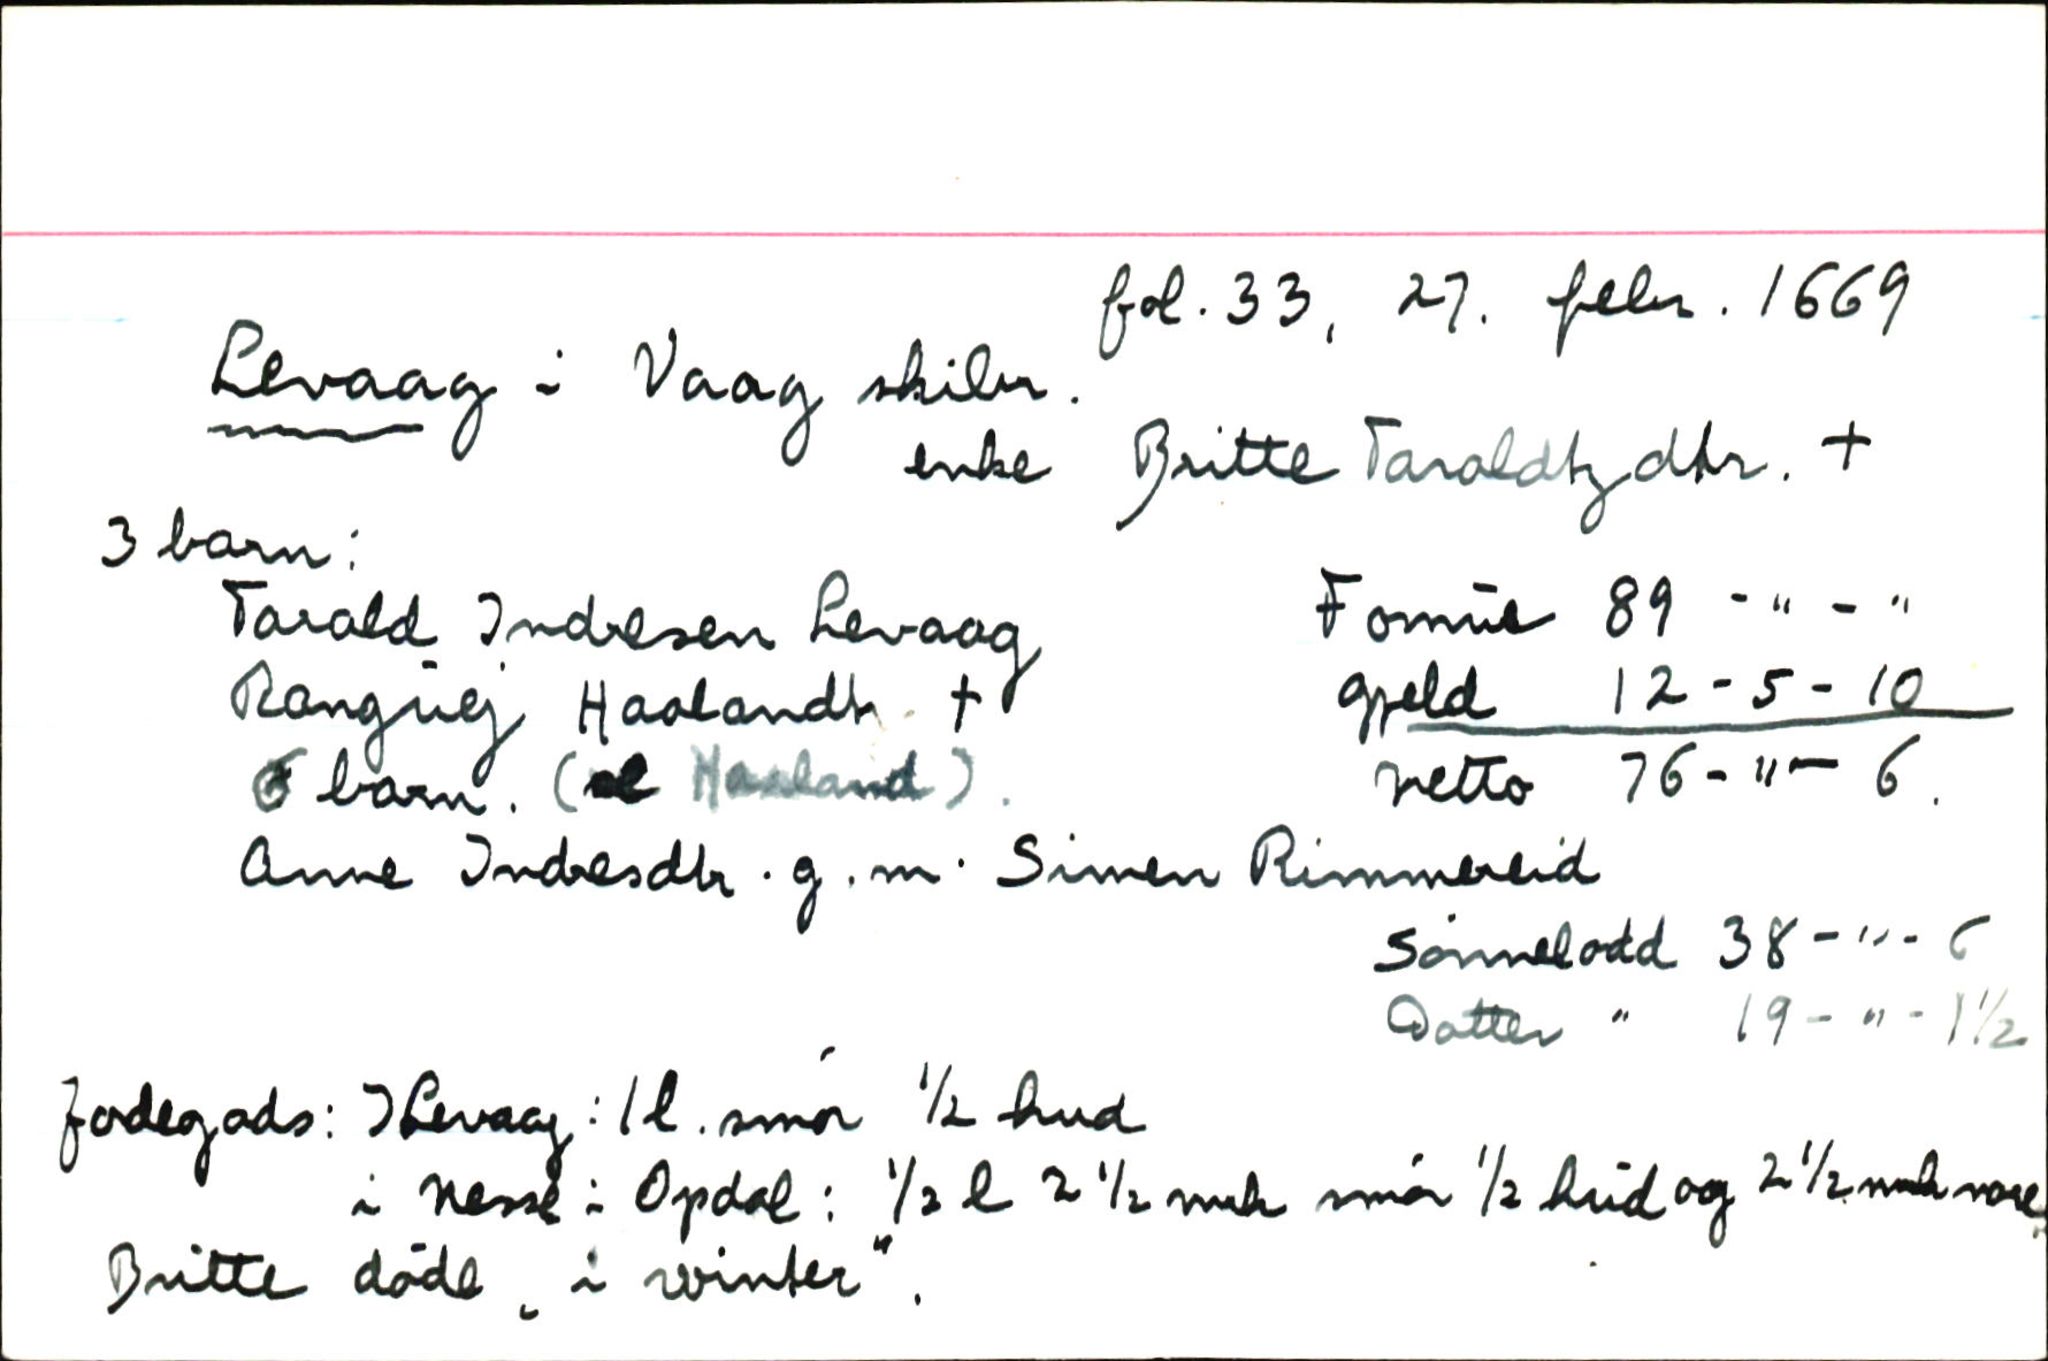 fol. 33, 27. febr. 1669
Levaag i Vaag skibr.
enke Britte Taraldtz dtr. +
3 barn:
Tarald Indresen Levaag Fomue 89 - " - "
Rangūej Haalandtr + gjeld 12 - 5 - 10
6 barn. ( Haaland). netto 76 - " - 6.
Anne Indresdtr. g. m. Simen Rimmereid
Sönnelodd 38 - " - 6
Datter " 19 - " - 1 1/2
Jordegods: I Levaag: 1 l. smör 1/2 hud
i Nesse i Opdal: 1/2 l 2 1/2 mrk smör 1/2 hūd og 2 1/2 mrk
Britte döde „i winter".